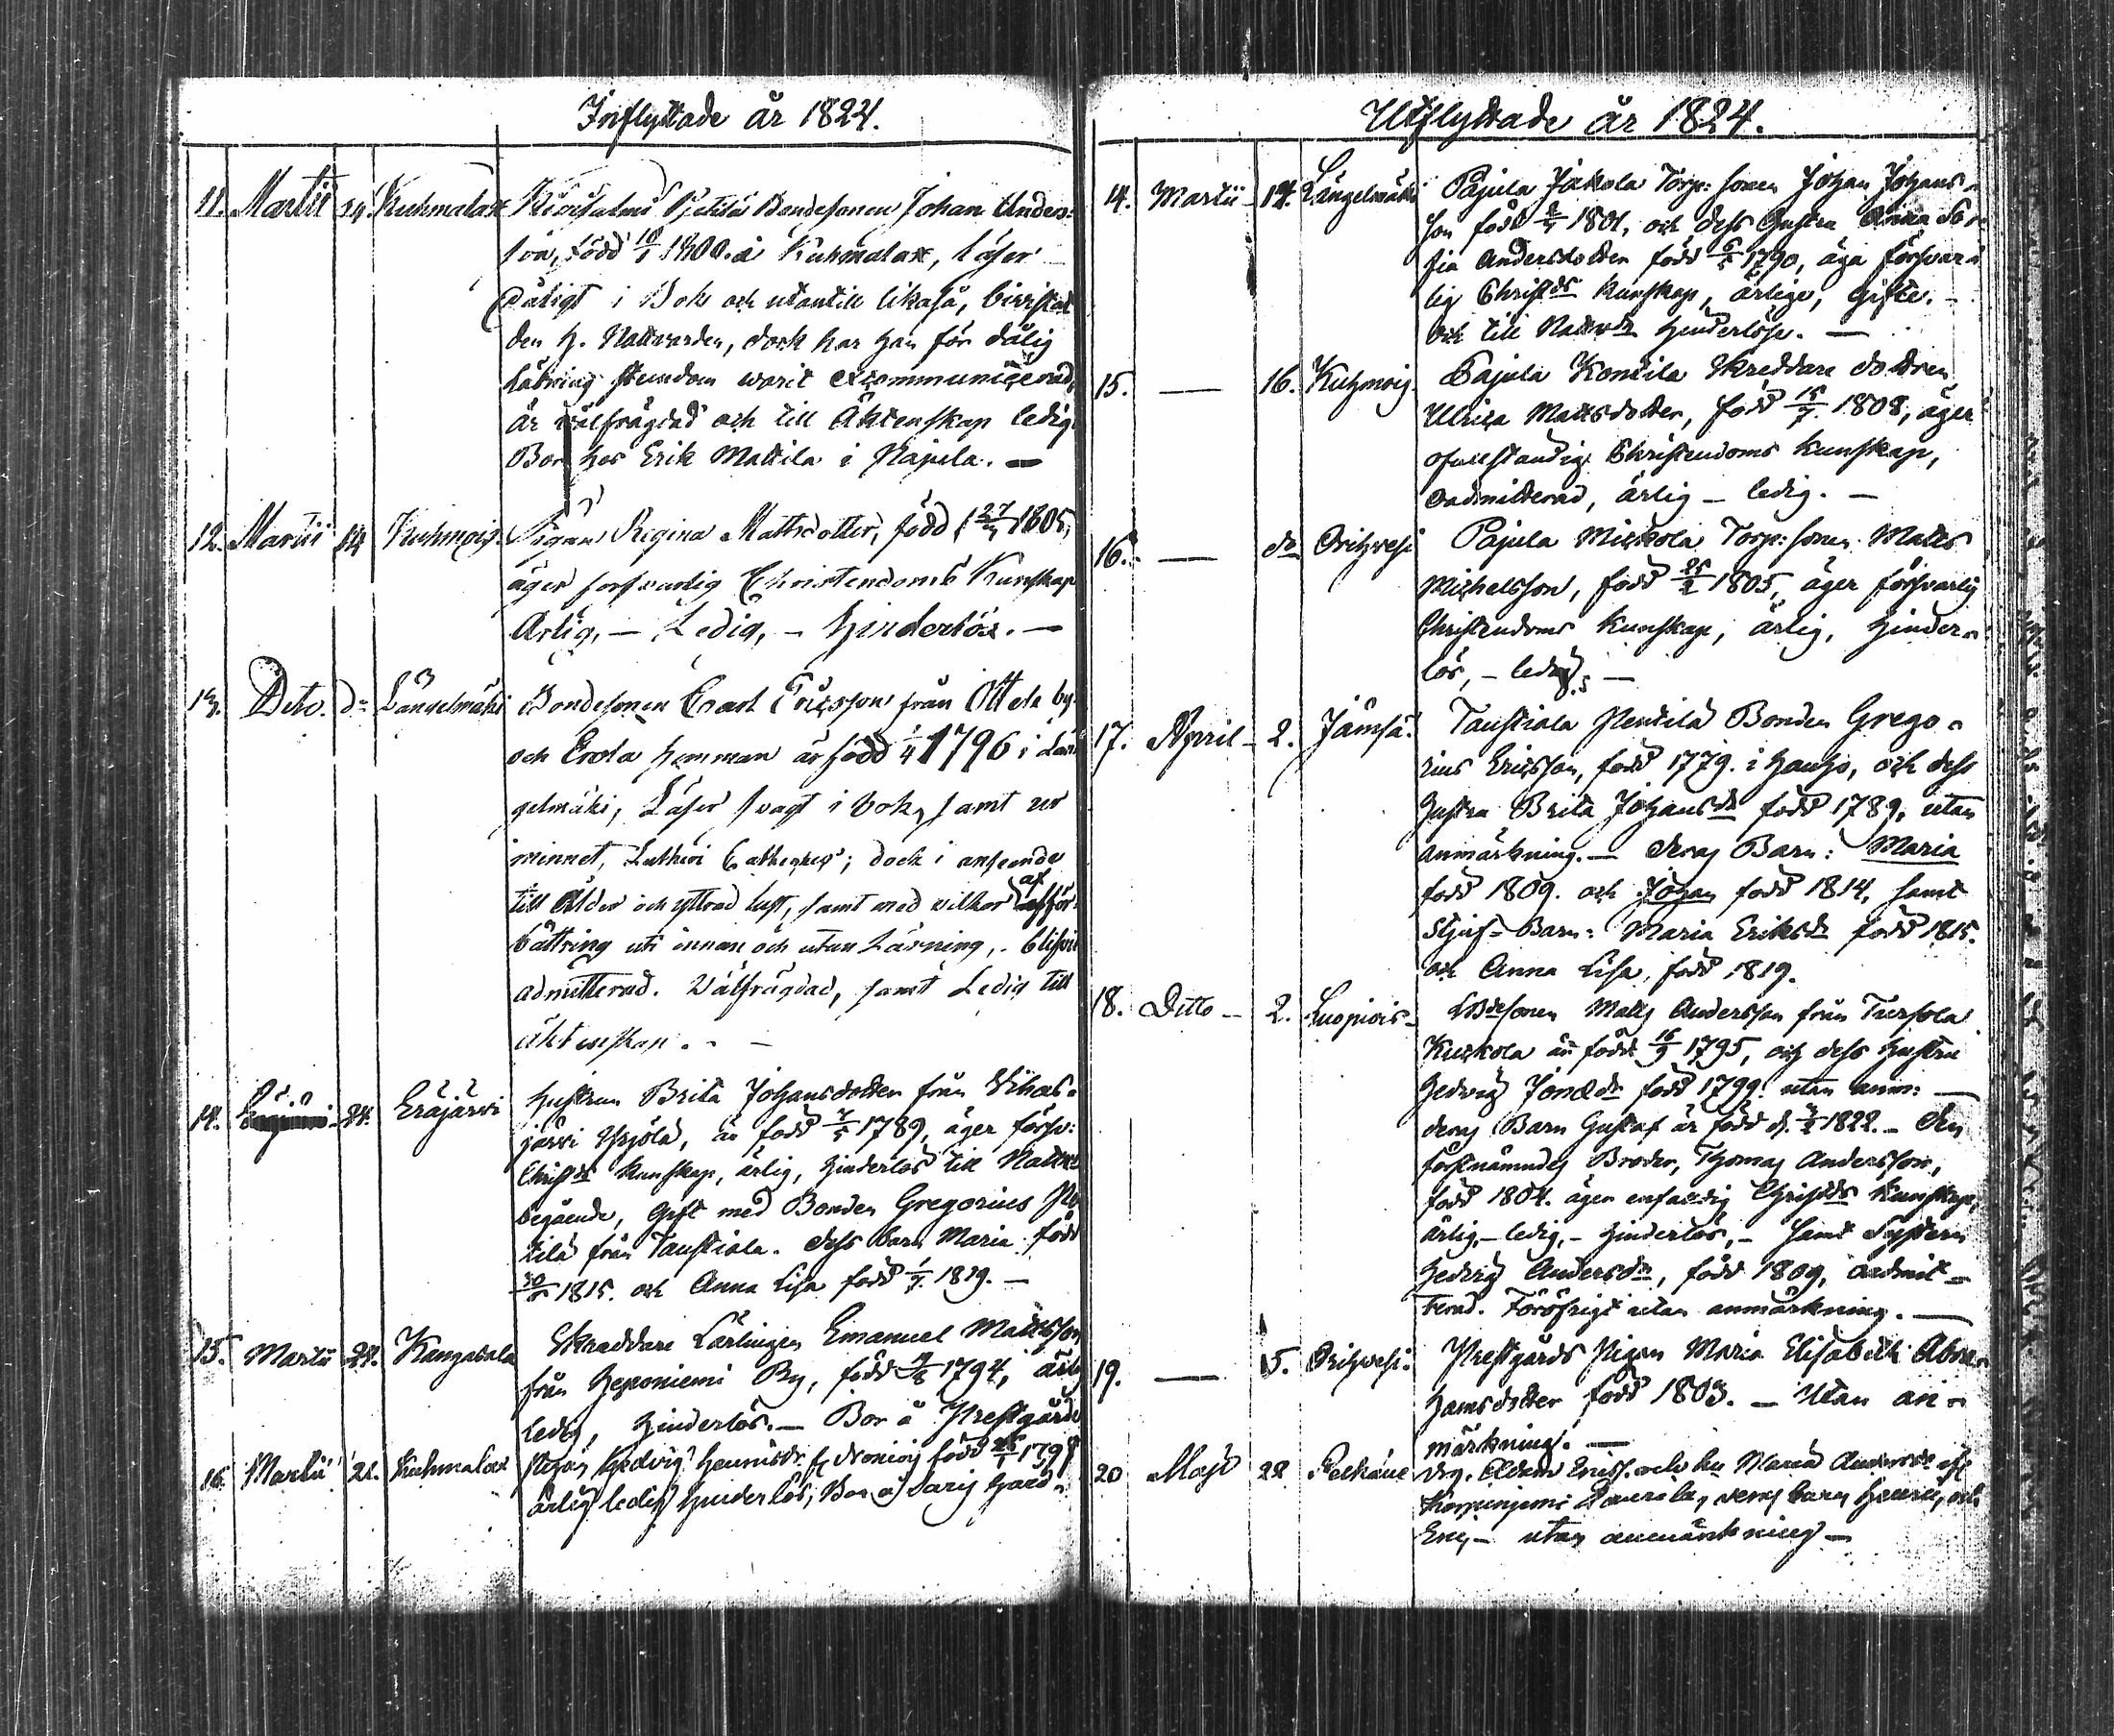 Inflyttade år 1824.
11. Martii 14 Kuhmalax Bondesonen Johan Anders-
son, född 1800. i Kuhmalax, Läser
dåligt i Bok och utantill likaså, bivistat
den H. Nattvarden, dock har han för dålig
stundom warit excommunicerad,
är wälfrägdad och till Äktenskap ledig.
Bor hos Erik Mattila i Pajula. —
12. Martii 14 Kuhmois. Pigan Regina Mattsdotter, född 27/ 1805,
äger forsvarlig Christendoms Kunskap
Ärlig, — Ledig, — hinderlös. —
13. Dito. do Längelmäki Bondesonen Ericsson från by
och Erola hemman är född 1/4 1796 i Län
gelmäki, Läser svagt i bok, samt ur
minnet, Lutheri Catheches; dock i anseende
till Ålder och yttrad lust, samt med vilkor af för-
bättring uti innan och utan Läsning, blifvit
admitterad. Wälfrägdad, samt Ledig till
äktenskap. —
14. 24. Eräjärvi Hustrun Brita Johansdotter från Vihas-
järvi Yrjölä, är född 1789, äger försv:
Christds Kunskap, ärlig, hinderlös till Nattv:
begående, Gift med Bonden Gregorius Pen
tilä från Taustiala. dess barn Maria född
1815. och Anna Lisa född 1819. —
15. Martii 24. Kangasala Skraddare Lärlingen Emanuel Mattsson
från Heponiemi By, född 1794, ärlig
ledig, hinderlös. — Bor å Prestgården
16. Martii 21. Kuhmalax Pigan Hedvig född
ärlig ledig hinderlös, Bor å
Utflyttade år 1824.
14. Martii — 14. Längelmäki Pajula Jakola Torp: sonen Johan Johans-
son född 1801, och dess Hustru Anna So-
fia Andersdotter född 6/5 1790, äga försvar-
lig Christds kunskap, ärlige, gifte. —
och till Nattvdn hinderlöse. —
15. — 16. Kuhmois. Pajula Konttila Skreddare dottren
Ulrica Mattsdotter, född 15/7 1808, äger
ofullständig Christendoms Kunskap,
oadmitterad, ärlig — ledig. —
16. — do Orihvesi Pajula Mickola Torp: sonen Matts
Michelsson, född 25/2 1805, äger försvarlig
Christendoms Kunskap, ärlig, hinder-
lös, — ledig. —
17. April — 2. Jämsä. Taustiala Pentilä Bonden Grego-
rius Ericsson, född 1779. i Hauho, och dess
Hustru Brita Johansdr född 1789, utan
anmärkning. — deras Barn: Maria
född 1809. och Johan född 1814, samt
Stjuf-Barn: Maria Eriksdr född 1815.
och Anna Lisa, född 1819.
18. Ditto — 2. Luopiois — Bdesonen Matts Andersson från
är född 16/9 1795, och dess Hustru
Hedvig född 1799. utan anm: —
deras Barn Gustaf är född d. 1822. — den
förstnämndes Broder, Thomas Andersson,
född 1804. äger enfaldig Christds kunskap,
ärlig, — ledig, — hinderlös, — samt Systern
Hedvig Andersdr, född 1809, admit-
terad. Föröfrigt utan anmärkning. —
19. — 5. Orihvesi. Prestgårds Pigan Maria Elisabeth Abra-
hamsdotter född 1803. — Utan an-
märkning. —
20 Maji 22 Pelkäne Adam och hu Maria
deras barn och
utan anmärkning —